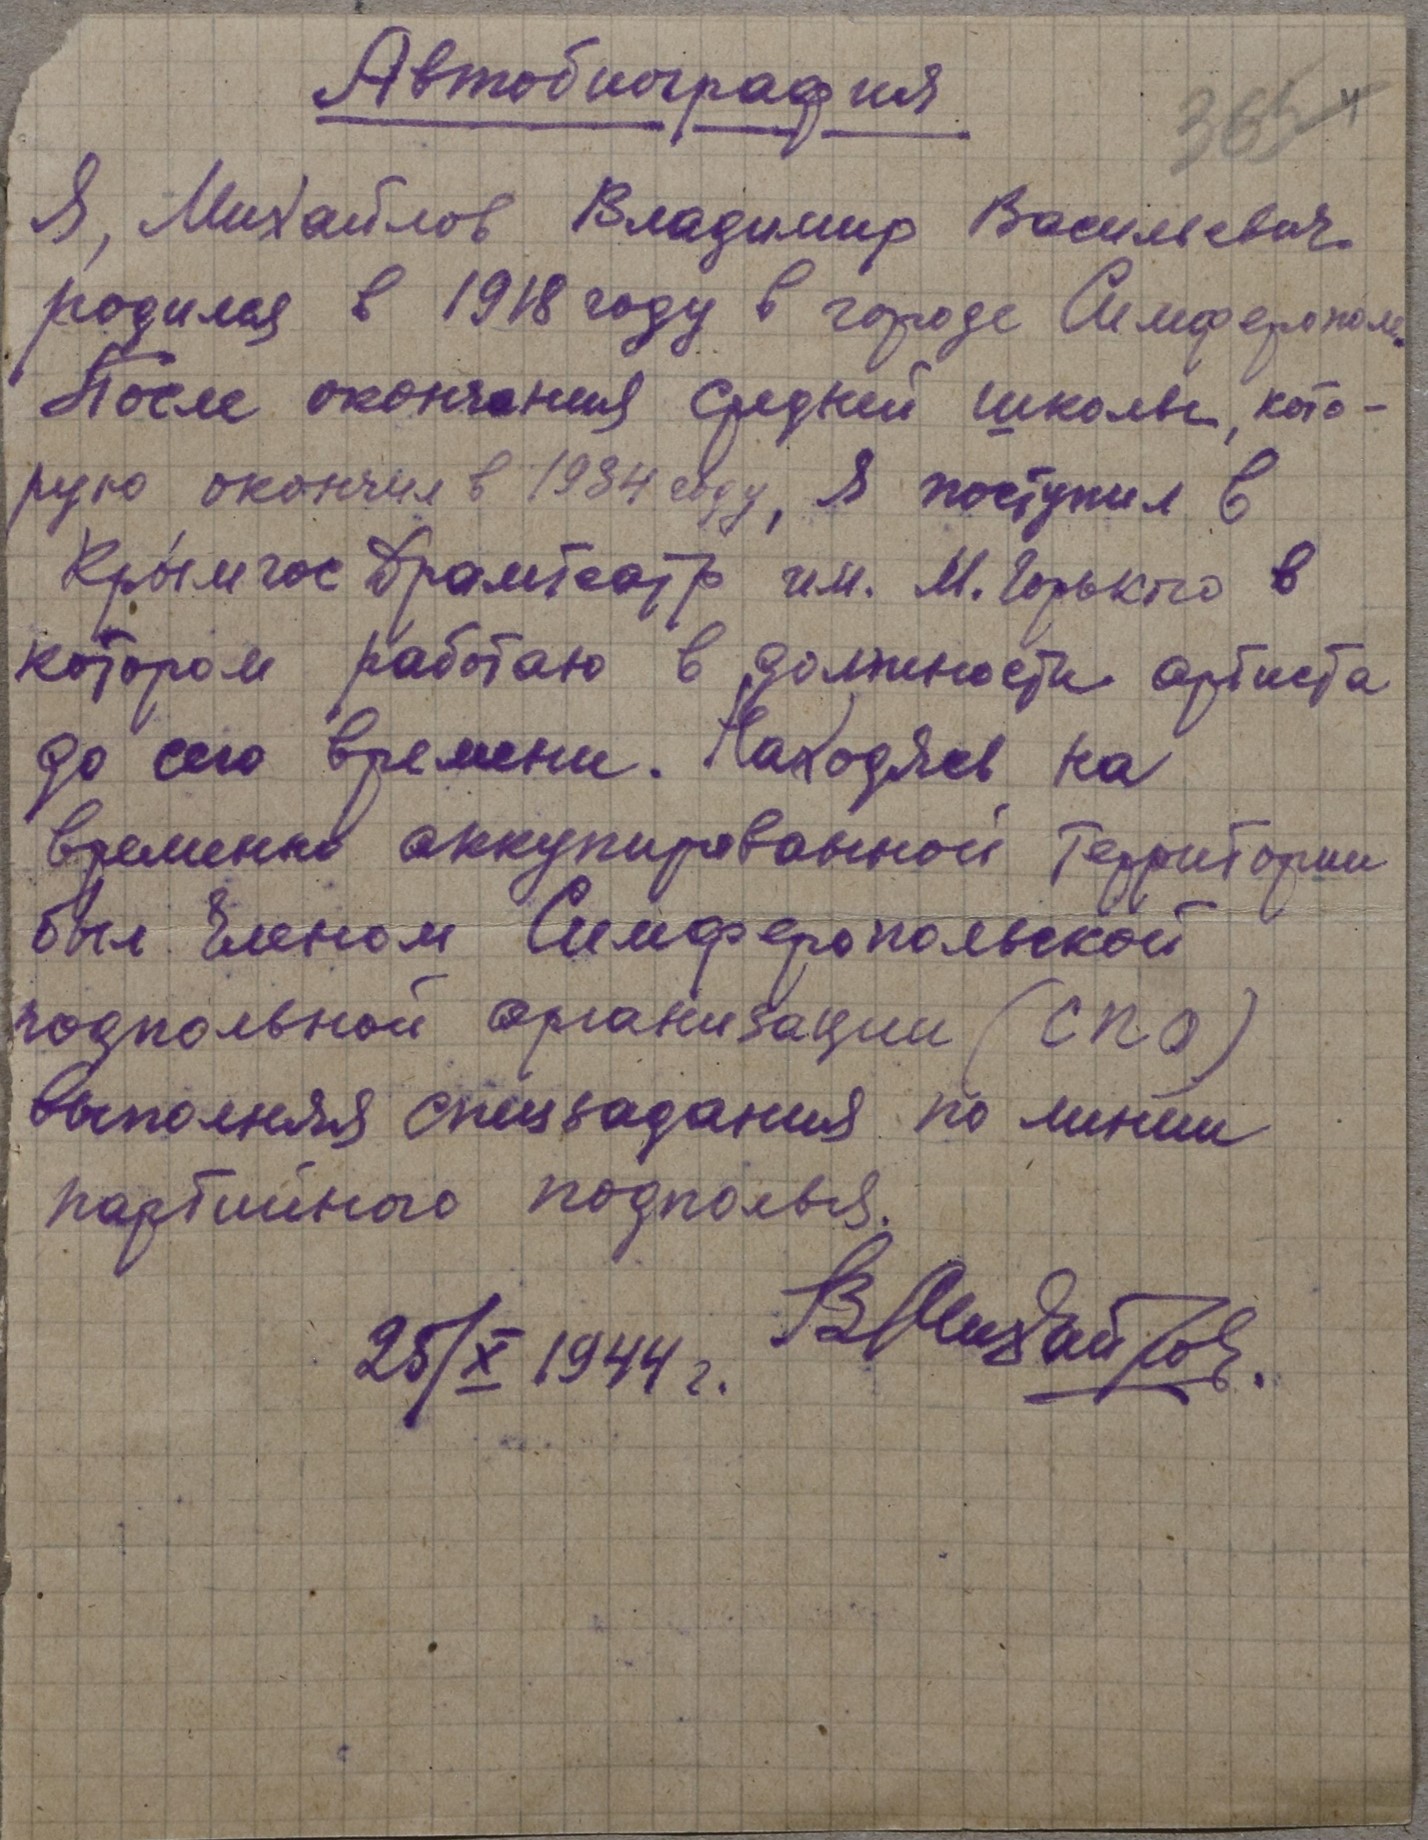 Автобиография
Я, Михайлов Владимир Васильевич.
родился в 1918 году в городе Симферополе.
После окончания средней школы, кото-
рую окончил в 1934 году, я поступил в
Крымгос Драмтеатр им. М. Горького в
котором работаю в должности артиста
до сего времени. Находясь на
временно аккупированной территории
был членом Симферопольской
подпольной организации (СПО)
выполняя спецзадания по линии
партийного подполья.
25/X 1944 г. В Михайлов.